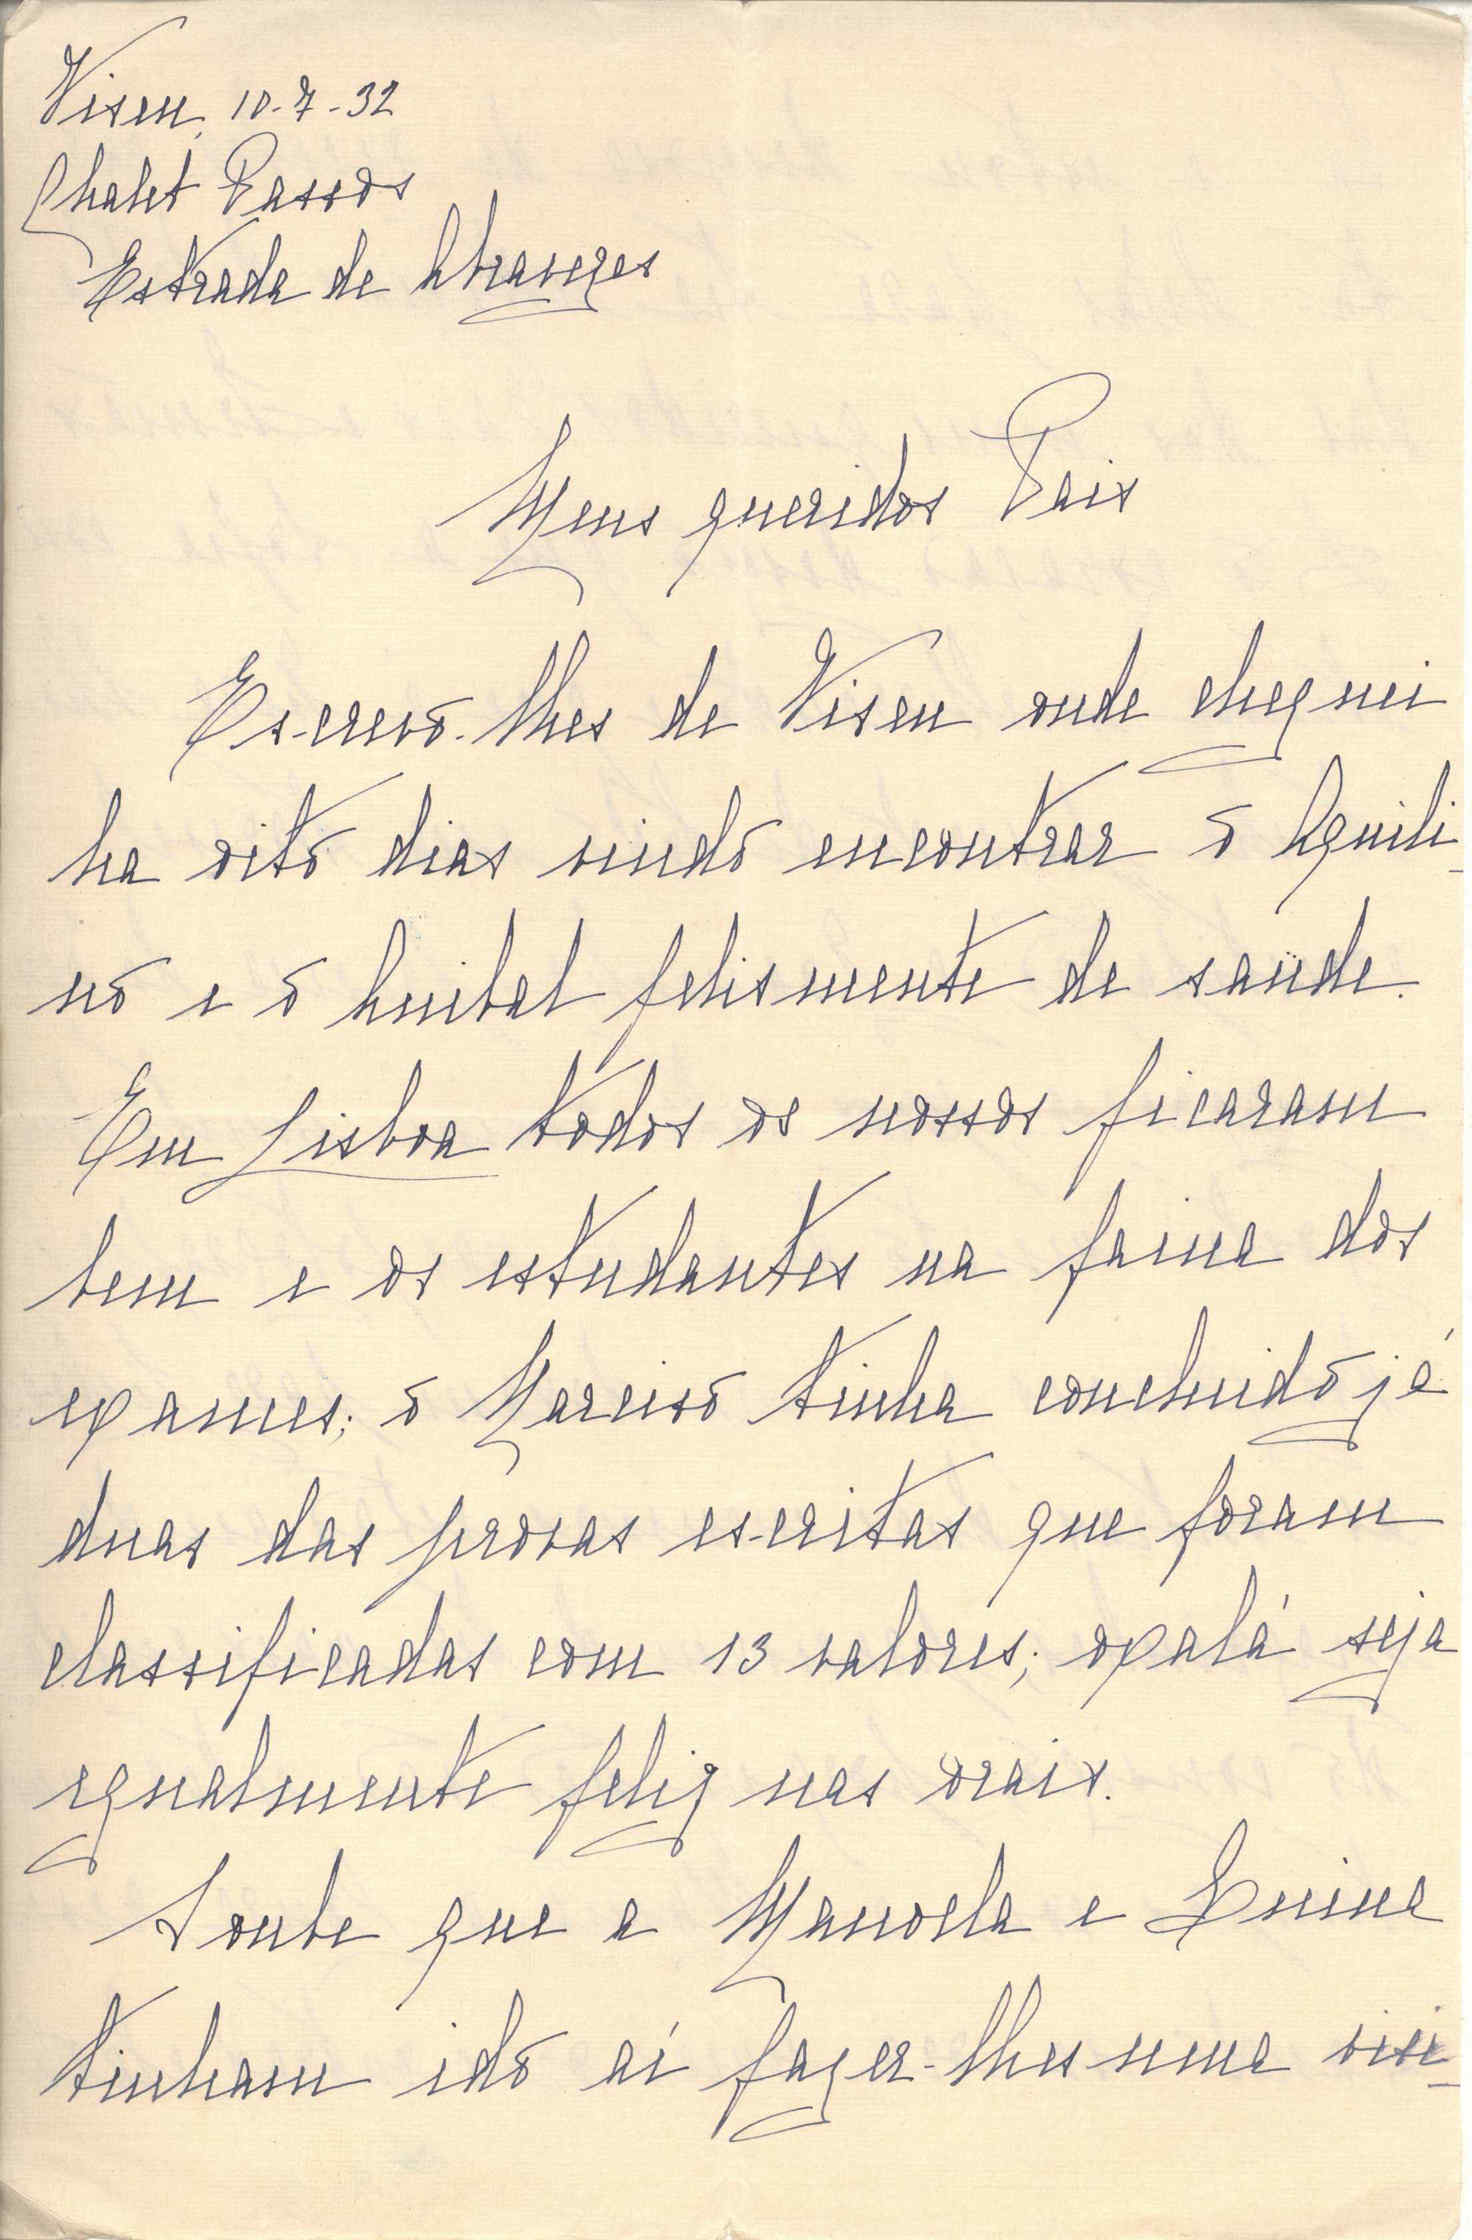 Viseu, 10-7-32
Chalet Passos
Estrada de Abraveses
Meus queridos Pais
Escrevo-lhes de Viseu onde cheguei
ha oito dias vindo encontrar o Aquili-
no e o Anibal felismente de saude.
Em Lisboa todos os nossos ficaram
bem e os estudantes na faina dos
exames; o Narciso tinha concluido já
duas das provas escritas que foram
classificadas com 13 valores; oxalá seja
egualmente feliz nas orais.
Soube que a Manoela e
tinham ido aí fazer-lhes uma visi-